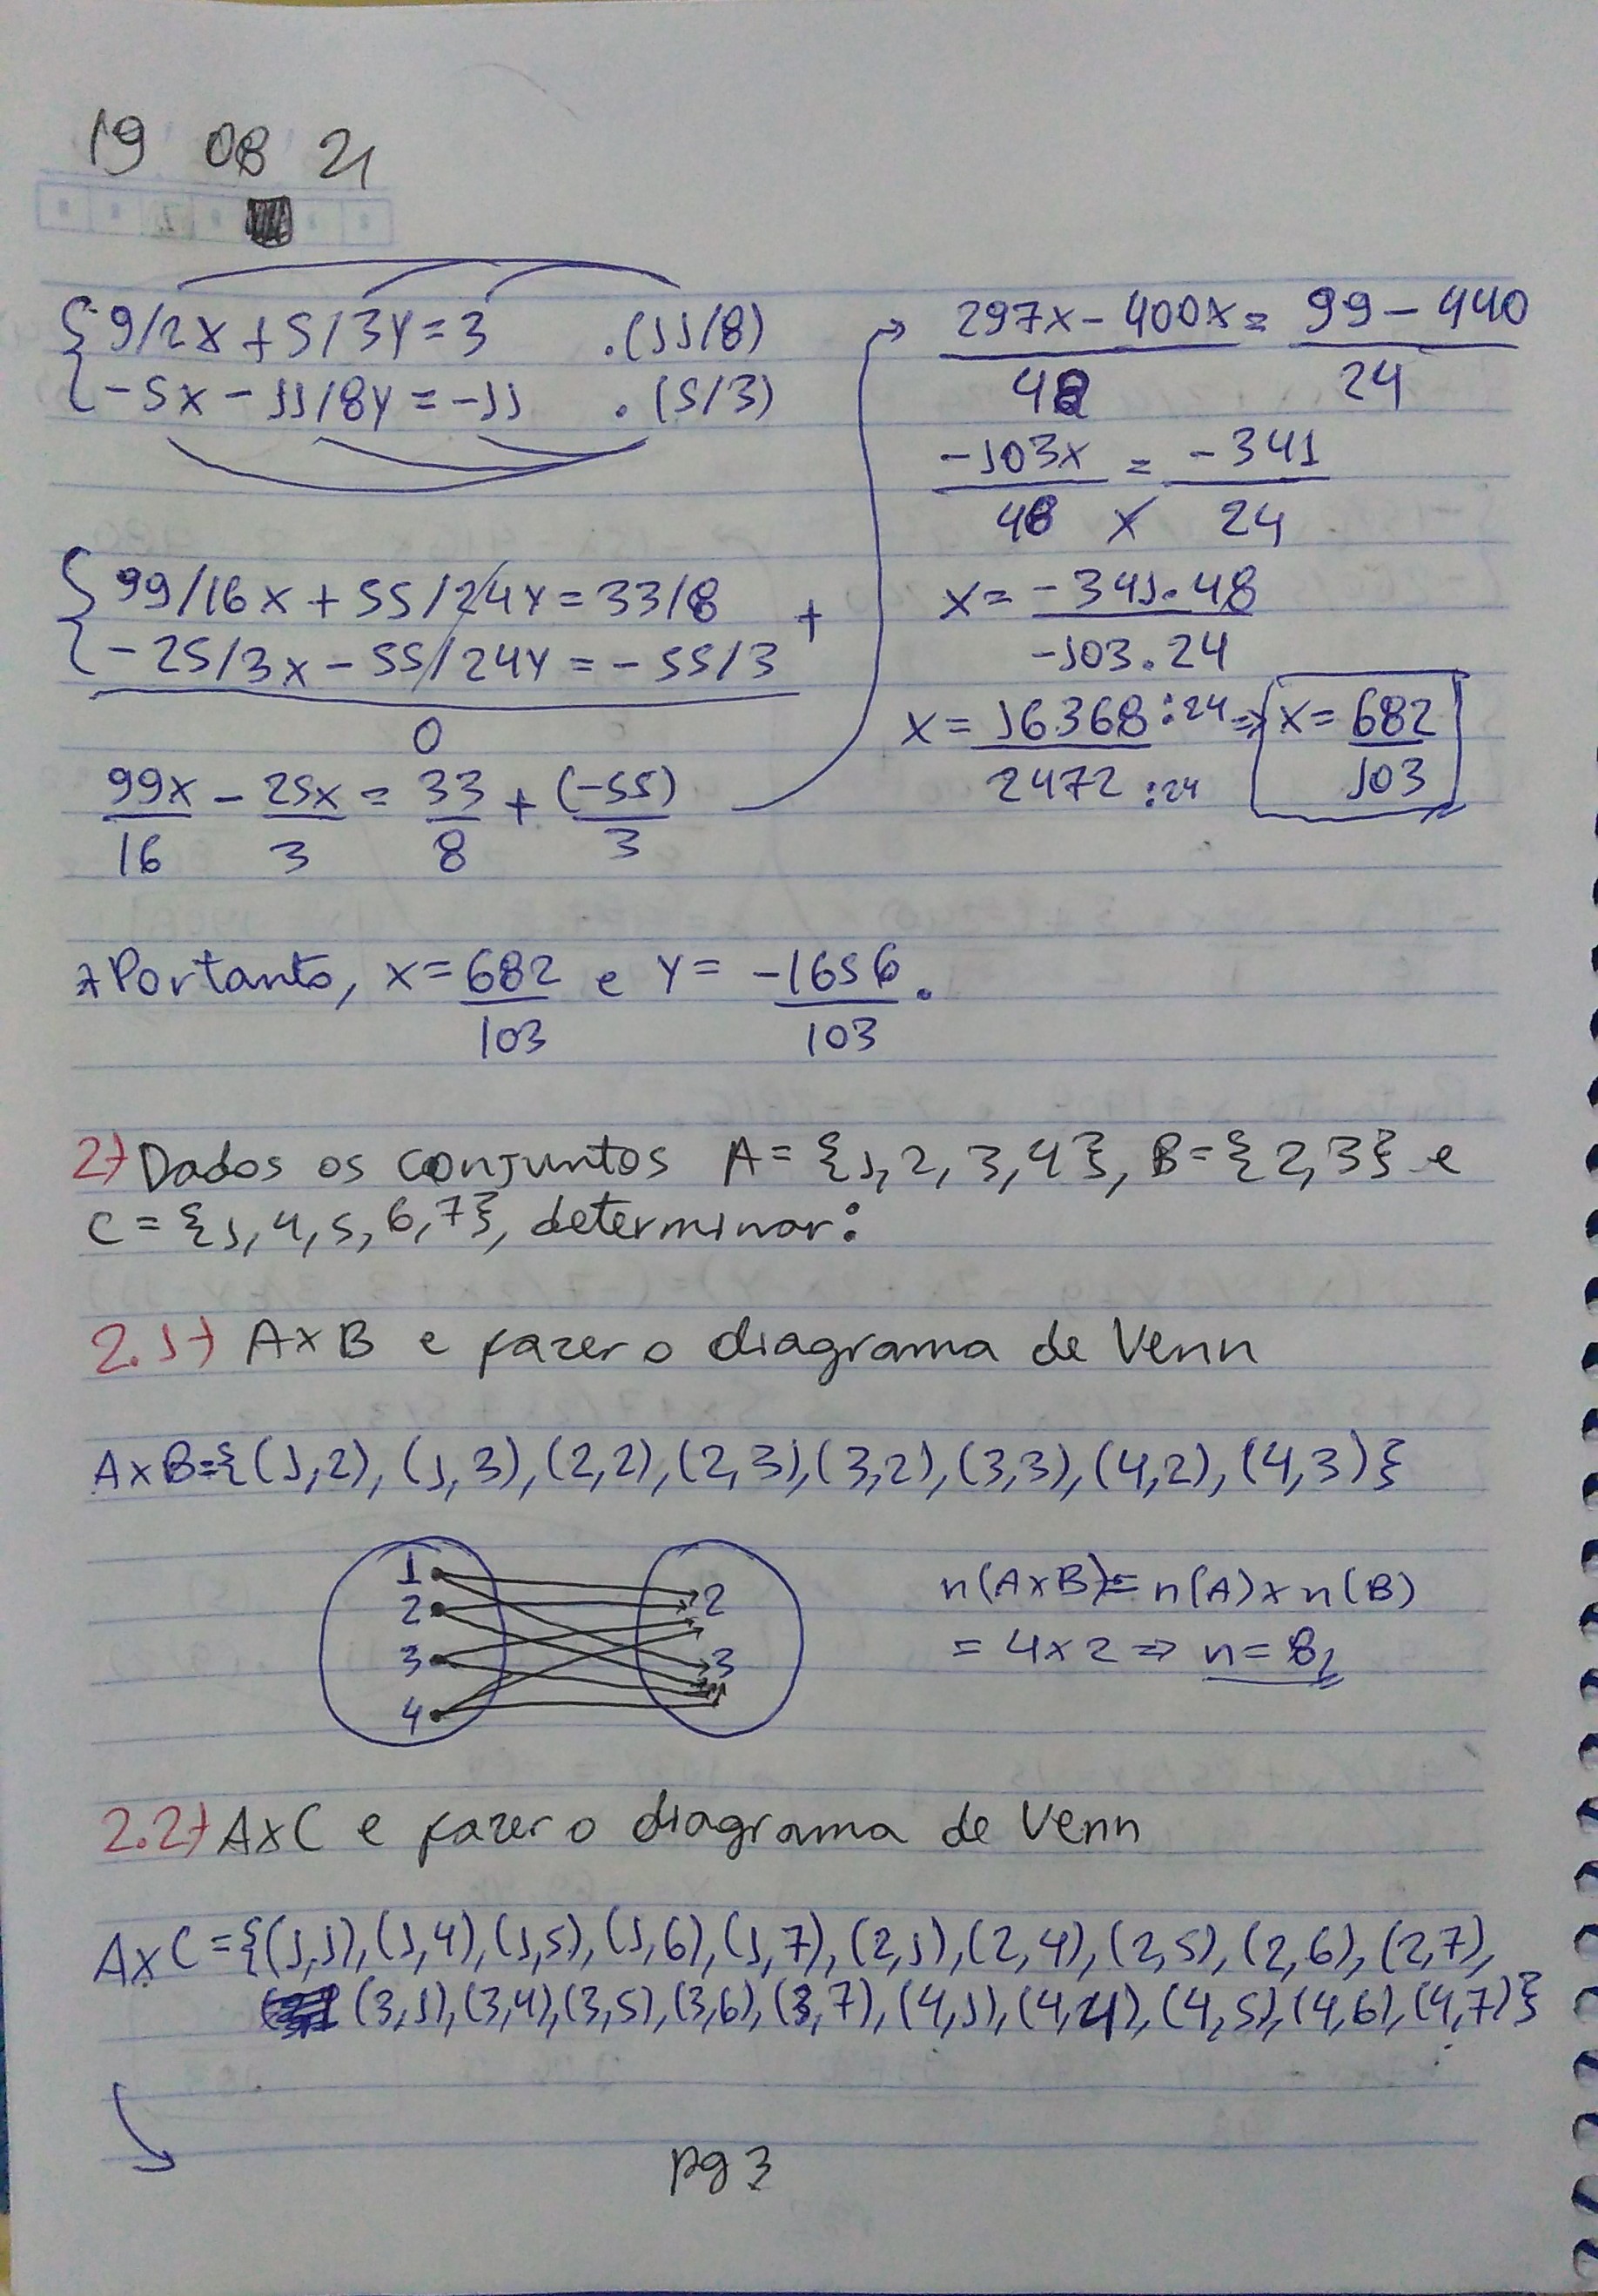 19 08 21
{9/2x + 5/3y = 3 .(11/8)
{-5x - 11/8y = -11 .(5/3)
{99/16x + 55/24y = 33/8
{-25/3x - 55/24y = -55/3 +
0
99x/16 - 25x/3 = 33/8 + (-55)/3
297x - 400x/48 = 99 - 440/24
-103x/48 x = -341/24
x = -341.48/-103.24
x = 16368:24/2472:24 => x = 682/103
*Portanto, x = 682/103 e y = -1656/103.
2) Dados os conjuntos A = {1, 2, 3, 4}, B = {2, 3} e
C = {1, 4, 5, 6, 7}, determinar:
2.1) AxB e fazer o diagrama de Venn
AxB = {(1,2), (1,3), (2,2), (2,3), (3,2), (3,3), (4,2), (4,3)}
1
2
3
4
2
3
n(AxB) = n(A) x n(B)
= 4x2 => n = 8
2.2) AxC e fazer o diagrama de Venn
AxC = {(1,1), (1,4), (1,5), (1,6), (1,7), (2,1), (2,4), (2,5), (2,6), (2,7),
(3,1), (3,4), (3,5), (3,6), (3,7), (4,1), (4,4), (4,5), (4,6), (4,7)}
pg 3